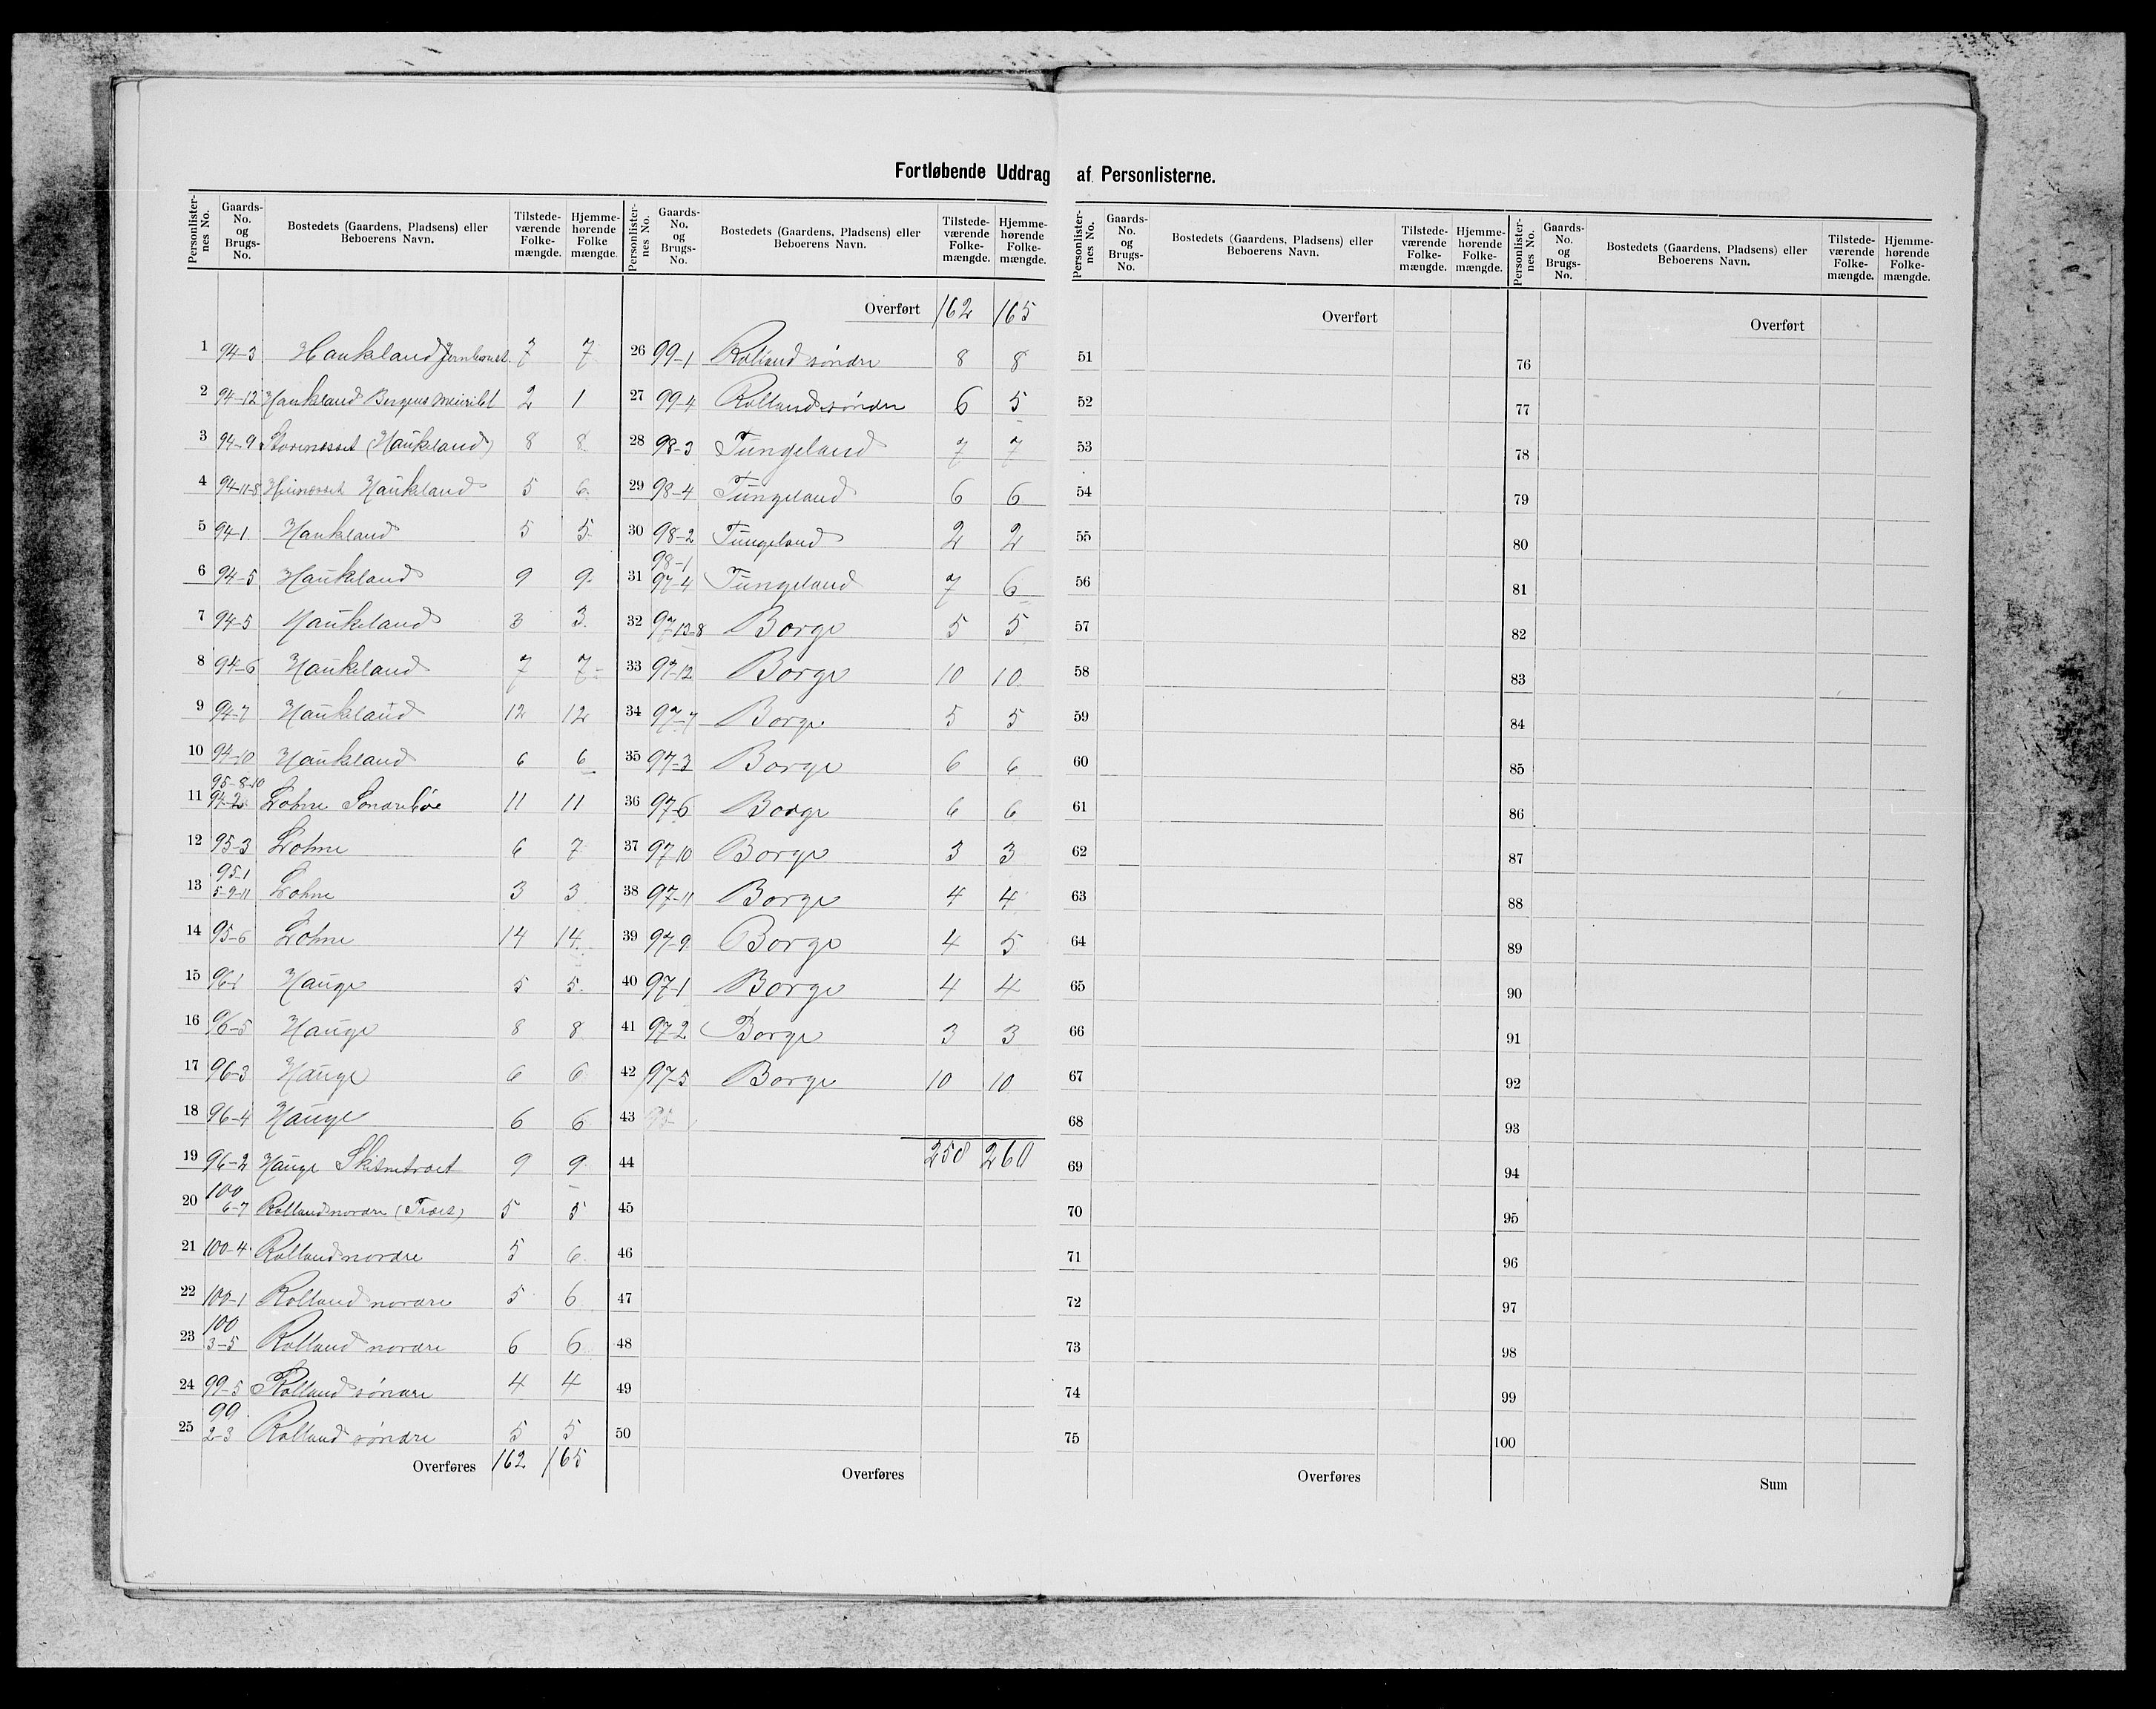 Fortløbende Uddrag af Personlisterne.
Personlister-nes No. Gaards-No. og Brugs-No. Bostedets (Gaardens, Pladsens) eller Beboerens Navn. Tilstede-værende Folke-mængde. Hjemme-hørende Folke mængde.
1 94-3 Haukland Jernbanest. 7 7
2 94-12 Haukland Bergens Meieribt 2 1
3 94-9 Storenesset (Haukeland) 8 8
4 94-11-8 Haukeland 5 6
5 94-1 Haukland 5 5
6 94-5 Haukeland 9 9
7 94-5 Haukeland 3 3
8 94-6 Haukeland 7 7
9 94-7 Haukland 12 12
10 94-10 Haukeland 6 6
11 95-8-10 94-2 Lohne Søndrebøe 11 11
12 95-3 Lohne 6 7
13 95-1 5-9-11 Lohne 3 3
14 95-6 Lohne 14 14
15 96-1 Hauge 5 5
16 96-5 Hauge 8 8
17 96-3 Hauge 6 6
18 96-4 Hauge 6 6
19 96-2 Hauge Skismetræet 9 9
20 100 6-7 Rolland nordre (Træet) 5 5
21 100-4 Rolland nordre 5 6
22 100-1 Rolland nordre 5 6
23 100 3-5 Rolland nordre 6 6
24 99-5 Rolland søndre 4 4
25 99 2-3 Rolland søndre 5 5
Overføres 162 165
Personlister-nes No. Gaards-No. og Brugs-No. Bostedets (Gaardens, Pladsens) eller Beboerens Navn. Tilstede-værende Folke-mængde. Hjemme-hørende Folke-mængde.
Overført 162 165
26 99-1 Rolland søndre 8 8
27 99-4 Rolland søndre 6 5
28 98-3 Tungeland 7 7
29 98-4 Tungeland 6 6
30 98-2 Tungeland 2 2
31 98-1 97-4 Tungeland 7 6
32 97-13-8 Borge 5 5
33 97-12 Borge 10 10
34 97-7 Borge 5 5
35 97-3 Borge 6 6
36 97-6 Borge 6 6
37 97-10 Borge 3 3
38 97-11 Borge 4 4
39 97-9 Borge 4 5
40 97-1 Borge 4 4
41 97-2 Borge 3 3
42 97-5 Borge 10 10
43
44 258 260
45
46
47
48
49
50
Overføres
Personlister-nes No. Gaards-No. og Brugs-No. Bostedets (Gaardens, Pladsens) eller Beboerens Navn. Tilstede-værende Folke-mængde. Hjemme-hørende Folke-mængde.
Overført
51
52
53
54
55
56
57
58
59
60
61
62
63
64
65
66
67
68
69
70
71
72
73
74
75
Overføres
Personlister-nes No. Gaards-No. og Brugs-No. Bostedets (Gaardens, Pladsens) eller Beboerens Navn. Tilstede-værende Folke-mængde. Hjemme-hørende Folke-mængde.
Overført
76
77
78
79
80
81
82
83
84
85
86
87
88
89
90
91
92
93
94
95
96
97
98
99
100
Sum